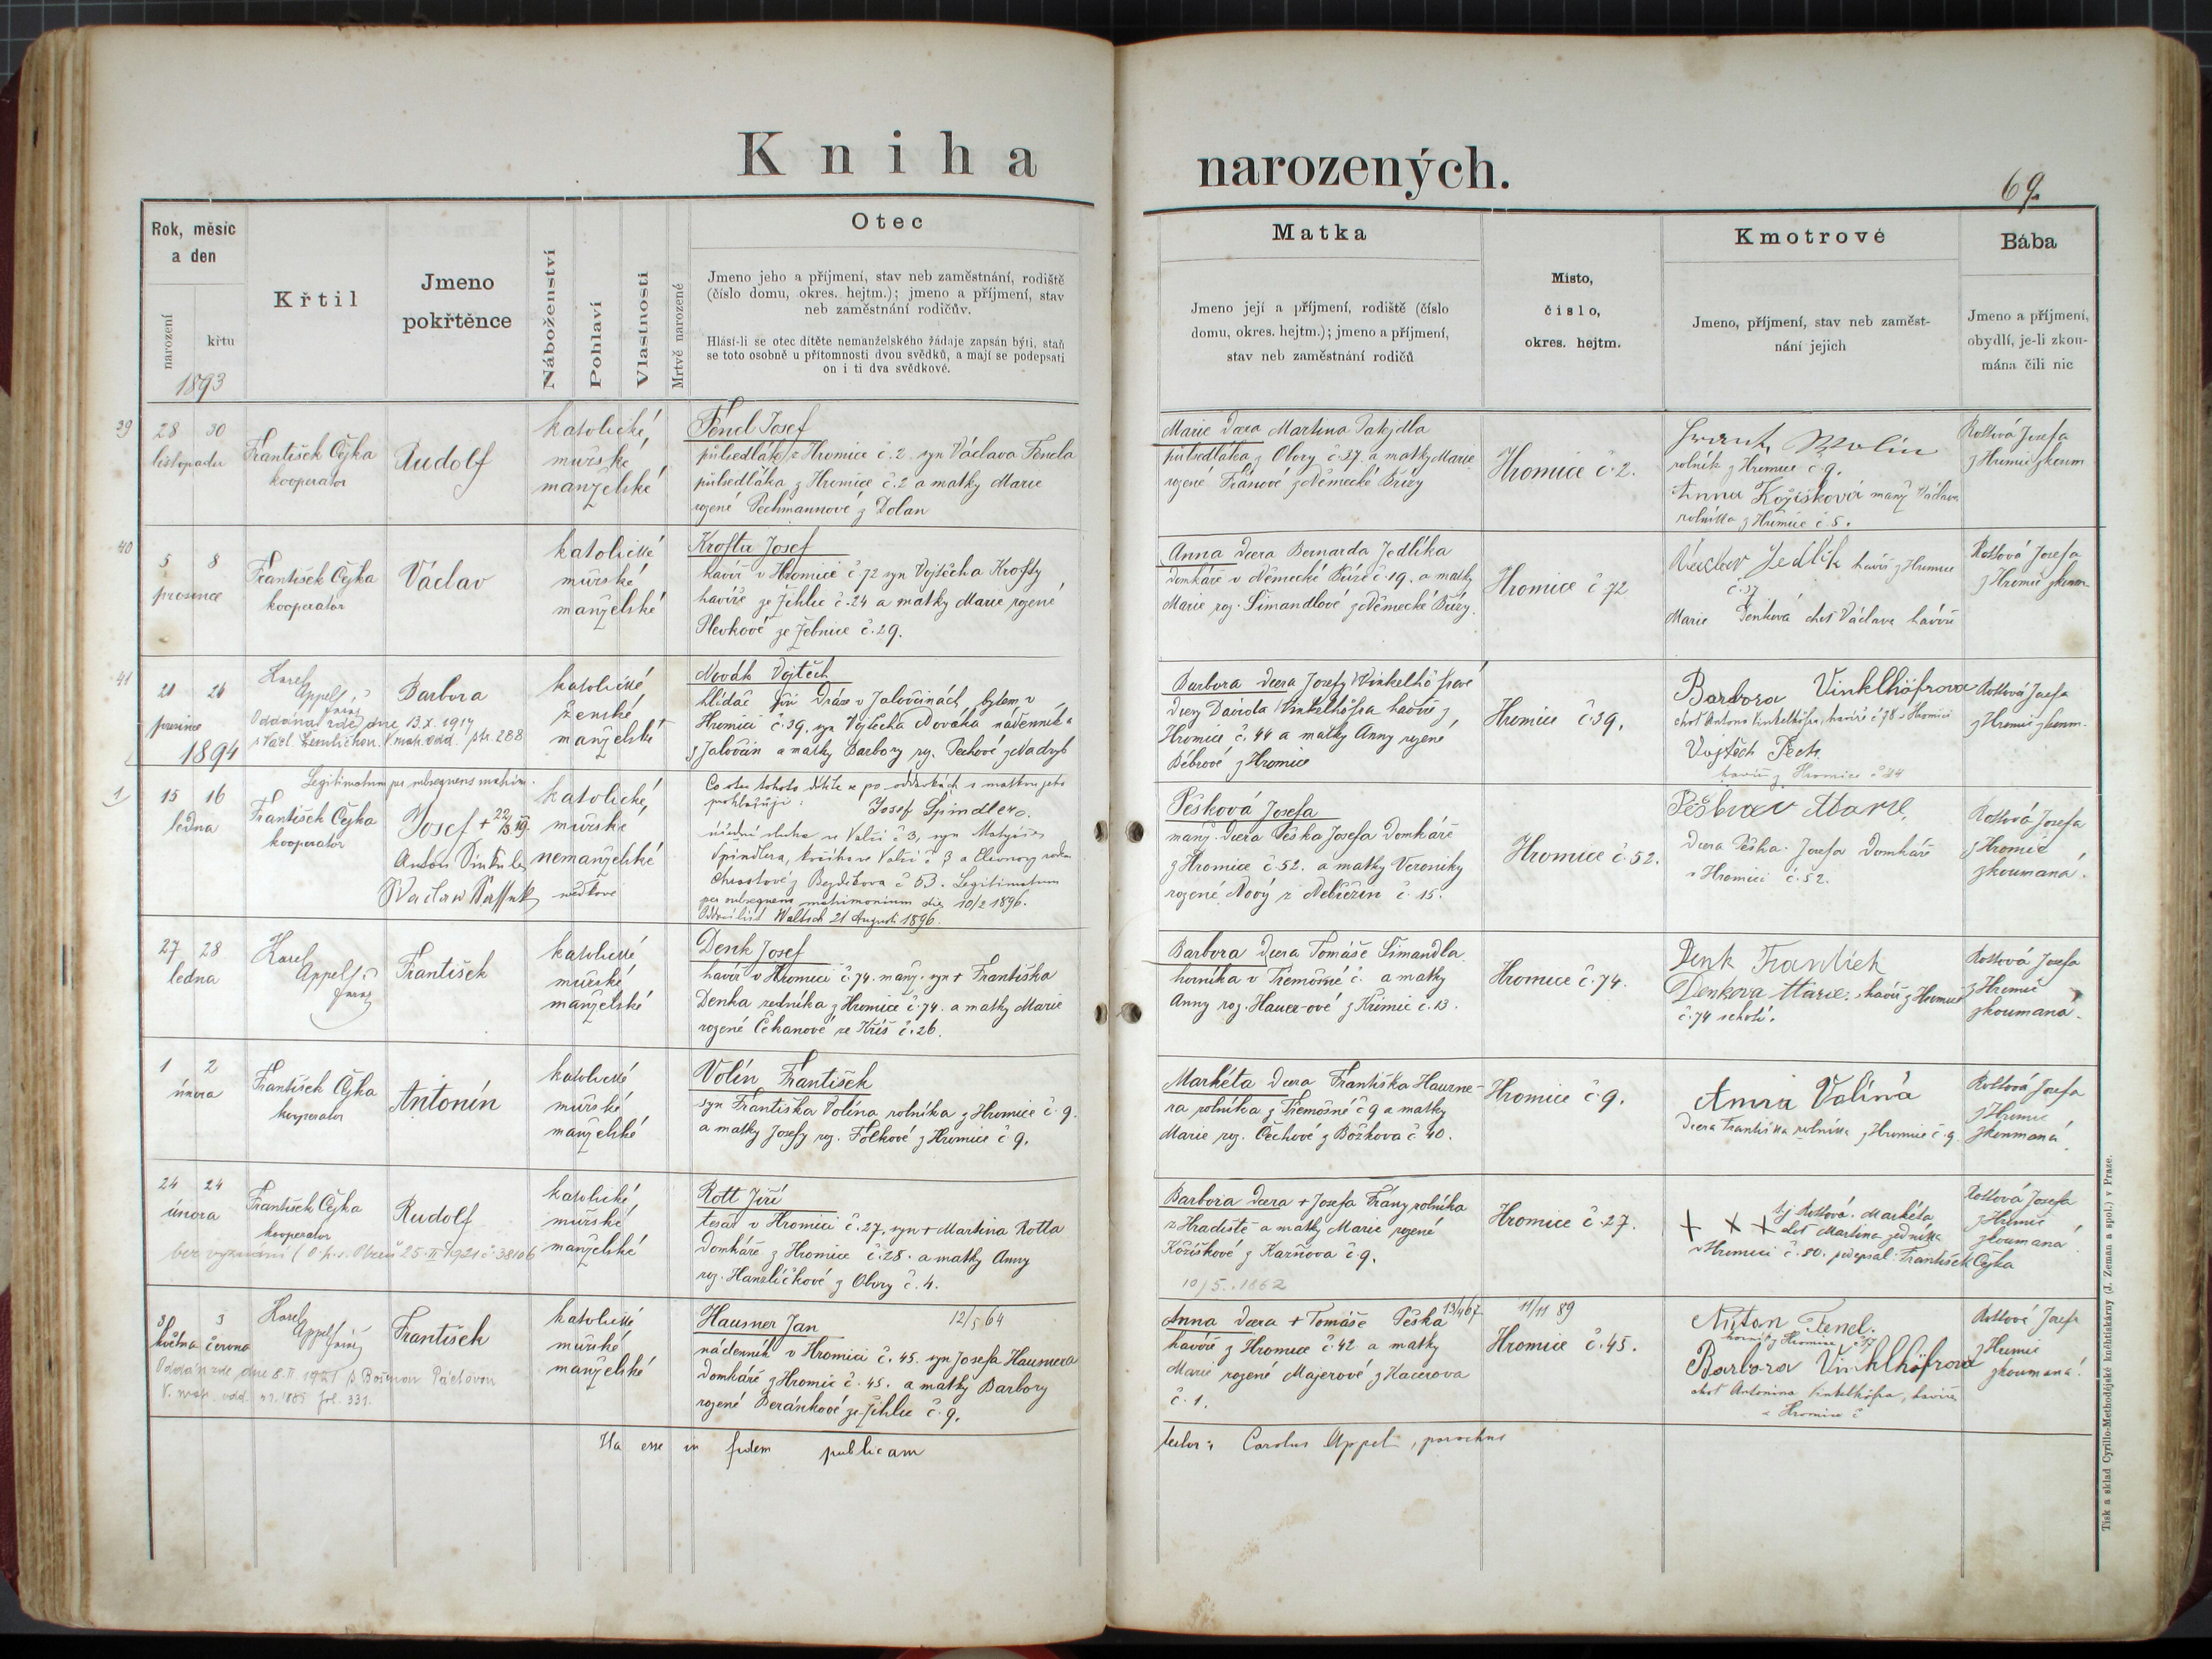 Kniha narozených.
69.
Rok, měsíc
a den
narození
křtu
1893
Křtil
Jmeno
pokřtěnce
Náboženství
Pohlaví
Vlastnosti
Mrtvě narozené
Otec
Jmeno jeho a příjmení, stav neb zaměstnání, rodiště
(číslo domu, okres. hejtm.); jmeno a příjmení, stav
neb zaměstnání rodičův.
Hlásí-li se otec dítěte nemanželského žádaje zapsán býti, staň
se toto osobně u přítomnosti dvou svědků, a mají se podepsati
on i ti dva svědkové.
Matka
Jmeno její a příjmení, rodiště (číslo
domu, okres. hejtm.); jmeno a příjmení,
stav neb zaměstnání rodičů
Místo,
číslo,
okres. hejtm.
Kmotrové
Jmeno, příjmení, stav neb zaměst-
nání jejich
Bába
Jmeno a příjmení,
obydlí, je-li zkou-
mána čili nic
39
28 30
listopadu
František Čejka
kooperator
Rudolf
katolické
mužské
manželské
Fencl Josef
půlsedlák z Hromice č. 2 syn Václava Fencla
půlsedláka z Hromice č. 2 a matky Marie
rozené Pechmannové z Dolan
Marie dcera Martina
půlsedláka z Obory č. 27. a matky Marie
rozené z Německé Břízy
Hromice č. 2.
Frant. Wolín
rolník z Hromice č. 9.
Anna Kožíšková manž. Václava
rolníka z Hromice č. 5.
Rottová Josefa
z Hromic zkoum
40
5 8
prosince
František Čejka
kooperator
Václav
katolické
mužské
manželské
Krofta Josef
havíř v Hromici č 72 syn Vojtěcha Krofty
havíře ze Jihlic č. 24 a matky Marie rozené
Plevkové ze Žebnice č. 29.
Anna dcera Bernarda Jedlíka
domkáře v Německé Bříze č. 19. a matky
Marie roz. Šimandlové z Německé Břízy.
Hromice č 72
Václav Jedlík havíř z Hromice
č. 37
Marie Denková choť Václava havíře
Rottová Josefa
z Hromic zkoum.
41
21 26
prosince
Karel
Appelt
farář
Barbora
Oddána zde dne 13.X.1917
katolické
ženské
manželské
Novák Vojtěch
hlídač při dráze v Jalovčinách, bytem v
Hromici č. 39, syn Vojtěcha Nováka nádenníka
z Jalovčin a matky Barbory roz. Pechové z Nadryb
Barbora dcera Josefy Winkelhöfrové
dcery Davida Winkelhöfra havíře z
Hromice č. 44 a matky Anny rozené
Bébrové z Hromice
Hromice č. 39.
Barbora Vinklhöfrova
choť Antona Vinkelhöfra, havíře č 78 z Hromice
Vojtěch Pech
havíř z Hromice č 24
Rottová Josefa
z Hromic zkoum.
1894
1
Legitimatum per subsequens matrim.
15 16
ledna
František Čejka
kooperator
Josef + 22/3 19.
katolické,
mužské
nemanželské
svědkové
Co otec tohoto dítěte se po oddavkách s matkou jeho
prohlašuji: Josef Spindler.
úřední sluha ve Valči č 3, syn Matyáše
Spindlera, v Valči č 3 a Eleonory rozen.
Chrastové z Bezděkova č 53. Legitimatum
per subsequens matrimonium die 10/2 1896.
Waltsch 21 Augusti 1896.
Pěšková Josefa
manž. dcera Pěška Josefa domkáře
z Hromice č. 52. a matky Veroniky
rozené Nový z Nebřezin č. 15.
Hromice č. 52.
Pěškov Marie,
dcera Pěška Josefa domkáře
v Hromici č. 52.
Rottová Josefa
z Hromic
zkoumaná.
27 28
ledna
Karel
Appelt
farář
František
katolické
mužské
manželské
Denk Josef
havíř v Hromici č. 74. manž. syn + Františka
Denka zedníka z Hromice č. 74. a matky Marie
rozené Čihanové ze Kříš č. 26.
Barbora dcera Tomáše Šimandla
horníka v Třemošné č. a matky
Anny roz. Hauer-ové z Křimic č. 13.
Hromice č. 74.
Denk František
Denkova Marie. havíř z Hromice
č. 74 s chotí.
Rottová Josefa
z Hromic
zkoumaná.
1 2
února
František Čejka
kooperator
Antonín
katolické
mužské
manželské
Volín František
syn Františka Volína rolníka z Hromice č. 9.
a matky Josefy roz. Folkové z Hromice č 9.
Markéta dcera Františka Hausne-
ra rolníka z Třemošné č 9 a matky
Marie roz. Čechové z Božkova č 40.
Hromice č. 9.
Anna Volína
dcera Františka rolníka z Hromice č. 9.
Rottová Josefa
z Hromic
zkoumaná
24 24
února
František Čejka
kooperator
Rudolf
bez vyznání
katolické,
mužské
manželské
Rott Jiří
tesař v Hromici č. 27. syn + Martina Rotta
domkáře z Hromice č. 28. a matky Anny
roz. Hanzlíčkové z Obory č. 4.
Barbora dcera + Josefa Frány rolníka
z Hradiště a matky Marie rozené
Kožíškové z Karňova č 9.
10/5.1862
Hromice č. 27.
+ + + Rottová Markéta
choť Martina zedníka
v Hromici č. 80. podepsal František Čejka
Rottová Josefa
z Hromic
zkoumaná
31 3
května června
Karel
Appelt farář
František
katolické
mužské
manželské
Hausner Jan 12/5 64
nádenník v Hromici č. 45. syn Josefa Hausnera
domkáře z Hromic č. 45. a matky Barbory
rozené Beránkové ze Jihlic č. 9.
Anna dcera + Tomáše Pěška 13/4 67
havíře z Hromice č. 42 a matky
Marie rozené Majerové z Kacerova
č. 1.
11/11 89
Hromice č. 45.
Antan Fencl.
Barbora Vinklhöfrova
choť Antonina Vinkelhöfra, havíře
z Hromice č
Rottová Josefa
z Hromic
zkoumaná.
Ita esse in fidem publicam
testor: Carolus Appelt, parochus
Tisk a sklad Cyrillo-Methodějské knihtiskárny (J. Zeman a spol.) v Praze.